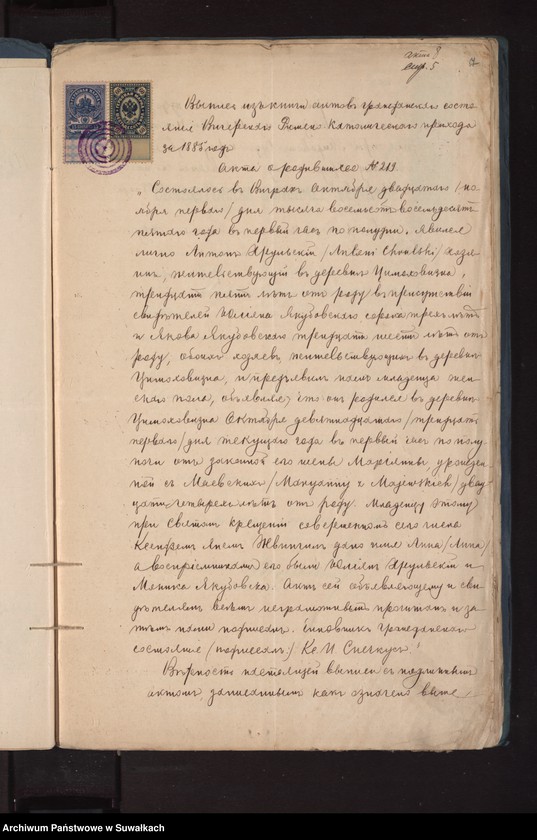 актъ 8
стр. 5
Выпись изъ книги актовъ гражданскаго состо-
янія Вигерскаго Римско-Католическаго прихода
за 1885 годъ
Акта о родившихся № 219.
„Состоялось въ Виграхъ Октября двадцатаго /но-
ября перваго/ дня тысяча восемьсотъ восемьдесятъ
пятаго года въ первый часъ по полудни. Явился
лично Антонъ Хрульскій /Antoni Chrulski/ хозя-
инъ, жительствующій въ деревнѣ Цимоховизна,
тридцати пяти лѣтъ отъ роду въ присутствіи
свидѣтелей Якубовскаго сорока трехъ лѣтъ
и Якова Якубовскаго тридцати шести лѣтъ отъ
роду, обоихъ хозяевъ, жительствующихъ въ деревнѣ
Цимоховизна, и предъявилъ намъ младенца жен-
скаго пола, объявляя, что онъ родился въ деревнѣ
Цимоховизна Октября девятнадцатаго /тридцать
перваго/ дня текущаго года въ первый часъ по полу-
ночи отъ законной его жены Маріанны, урожден-
ной съ Маевскихъ /Maryanny z Majewskich/ двад-
цати четырехъ лѣтъ отъ роду. Младенцу этому
при Святомъ крещеніи совершенномъ сего числа
Ксендземъ дано имя Анна /Anna/
а воспріемниками его были Хрульскій и
Якубовска. Актъ сей объявляющему и сви-
дѣтелямъ всѣмъ неграмотнымъ прочитанъ и за-
тѣмъ нами подписанъ. Чиновникъ Гражданскаго
состоянія (подписалъ:) Кс. И. Спечкусъ.“
Вѣрность настоящей выписи съ подлиннымъ
актомъ, записаннымъ какъ означено выше,
Archiwum Państwowe w Suwałkach